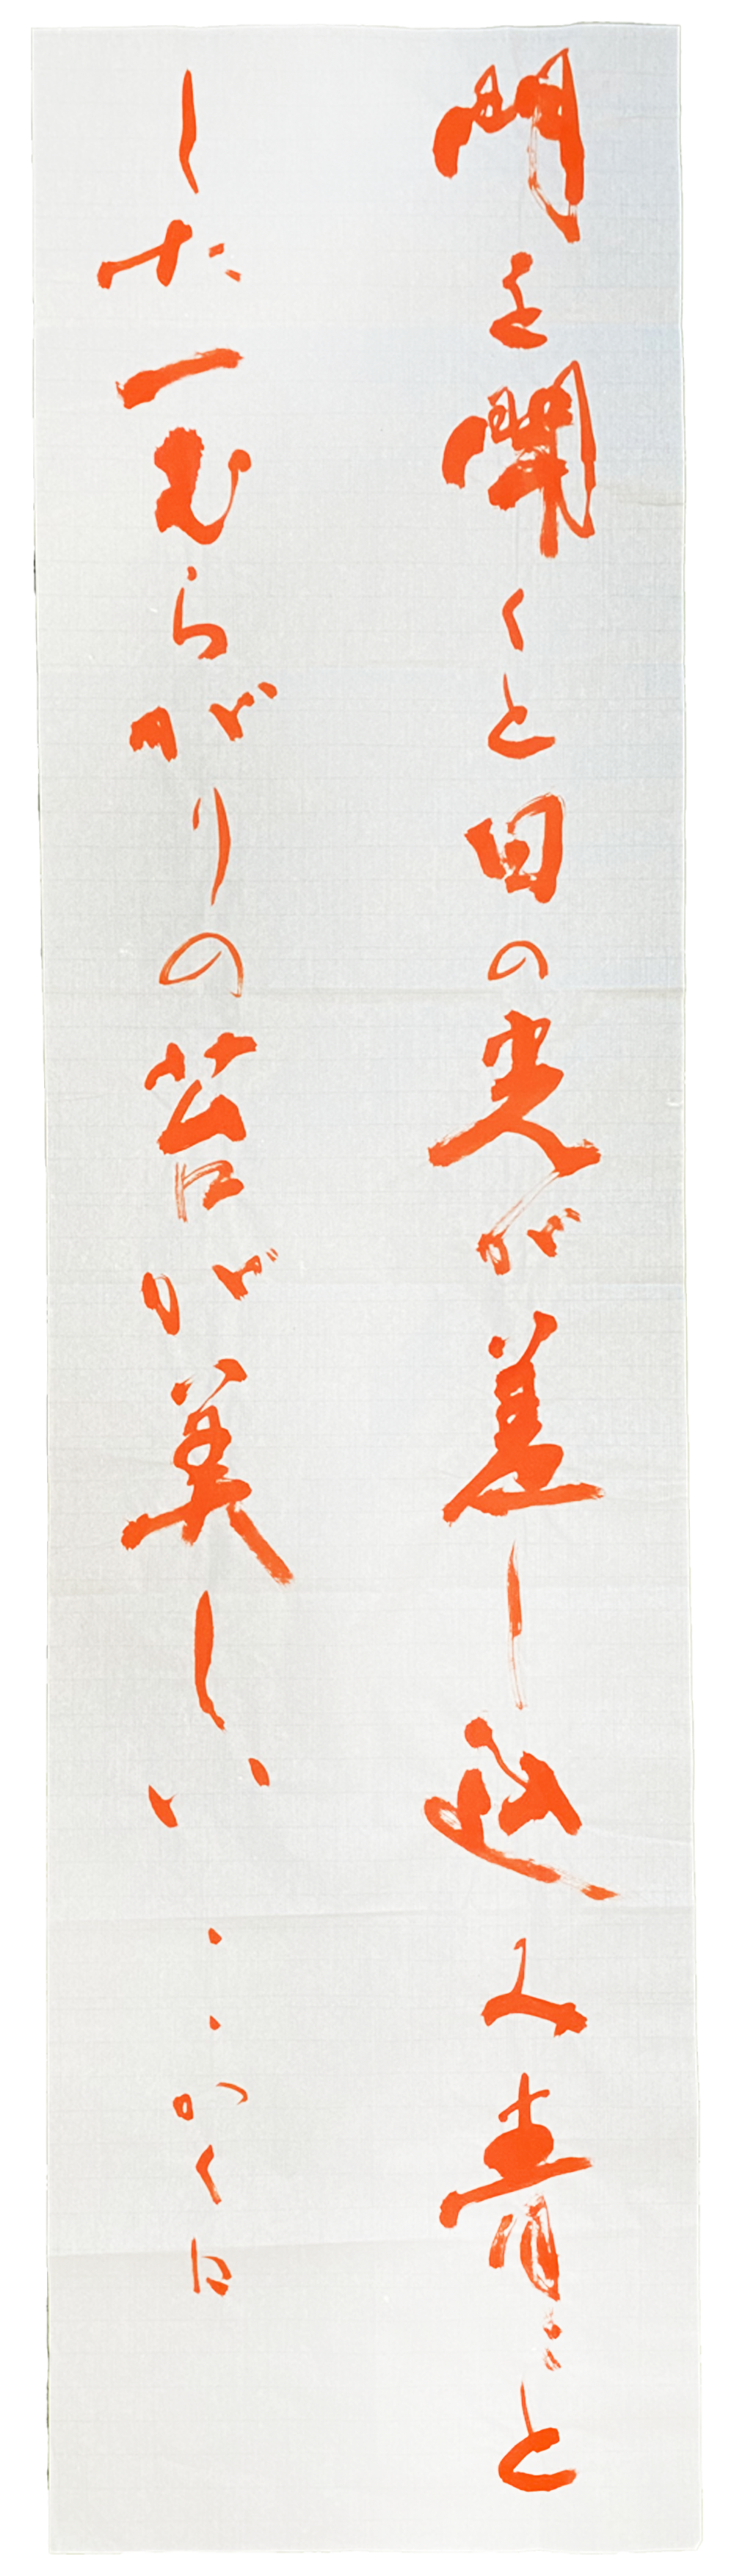 門を開くと日の光が差し込み青々と
した一むらがりの苔が美しい
かくに